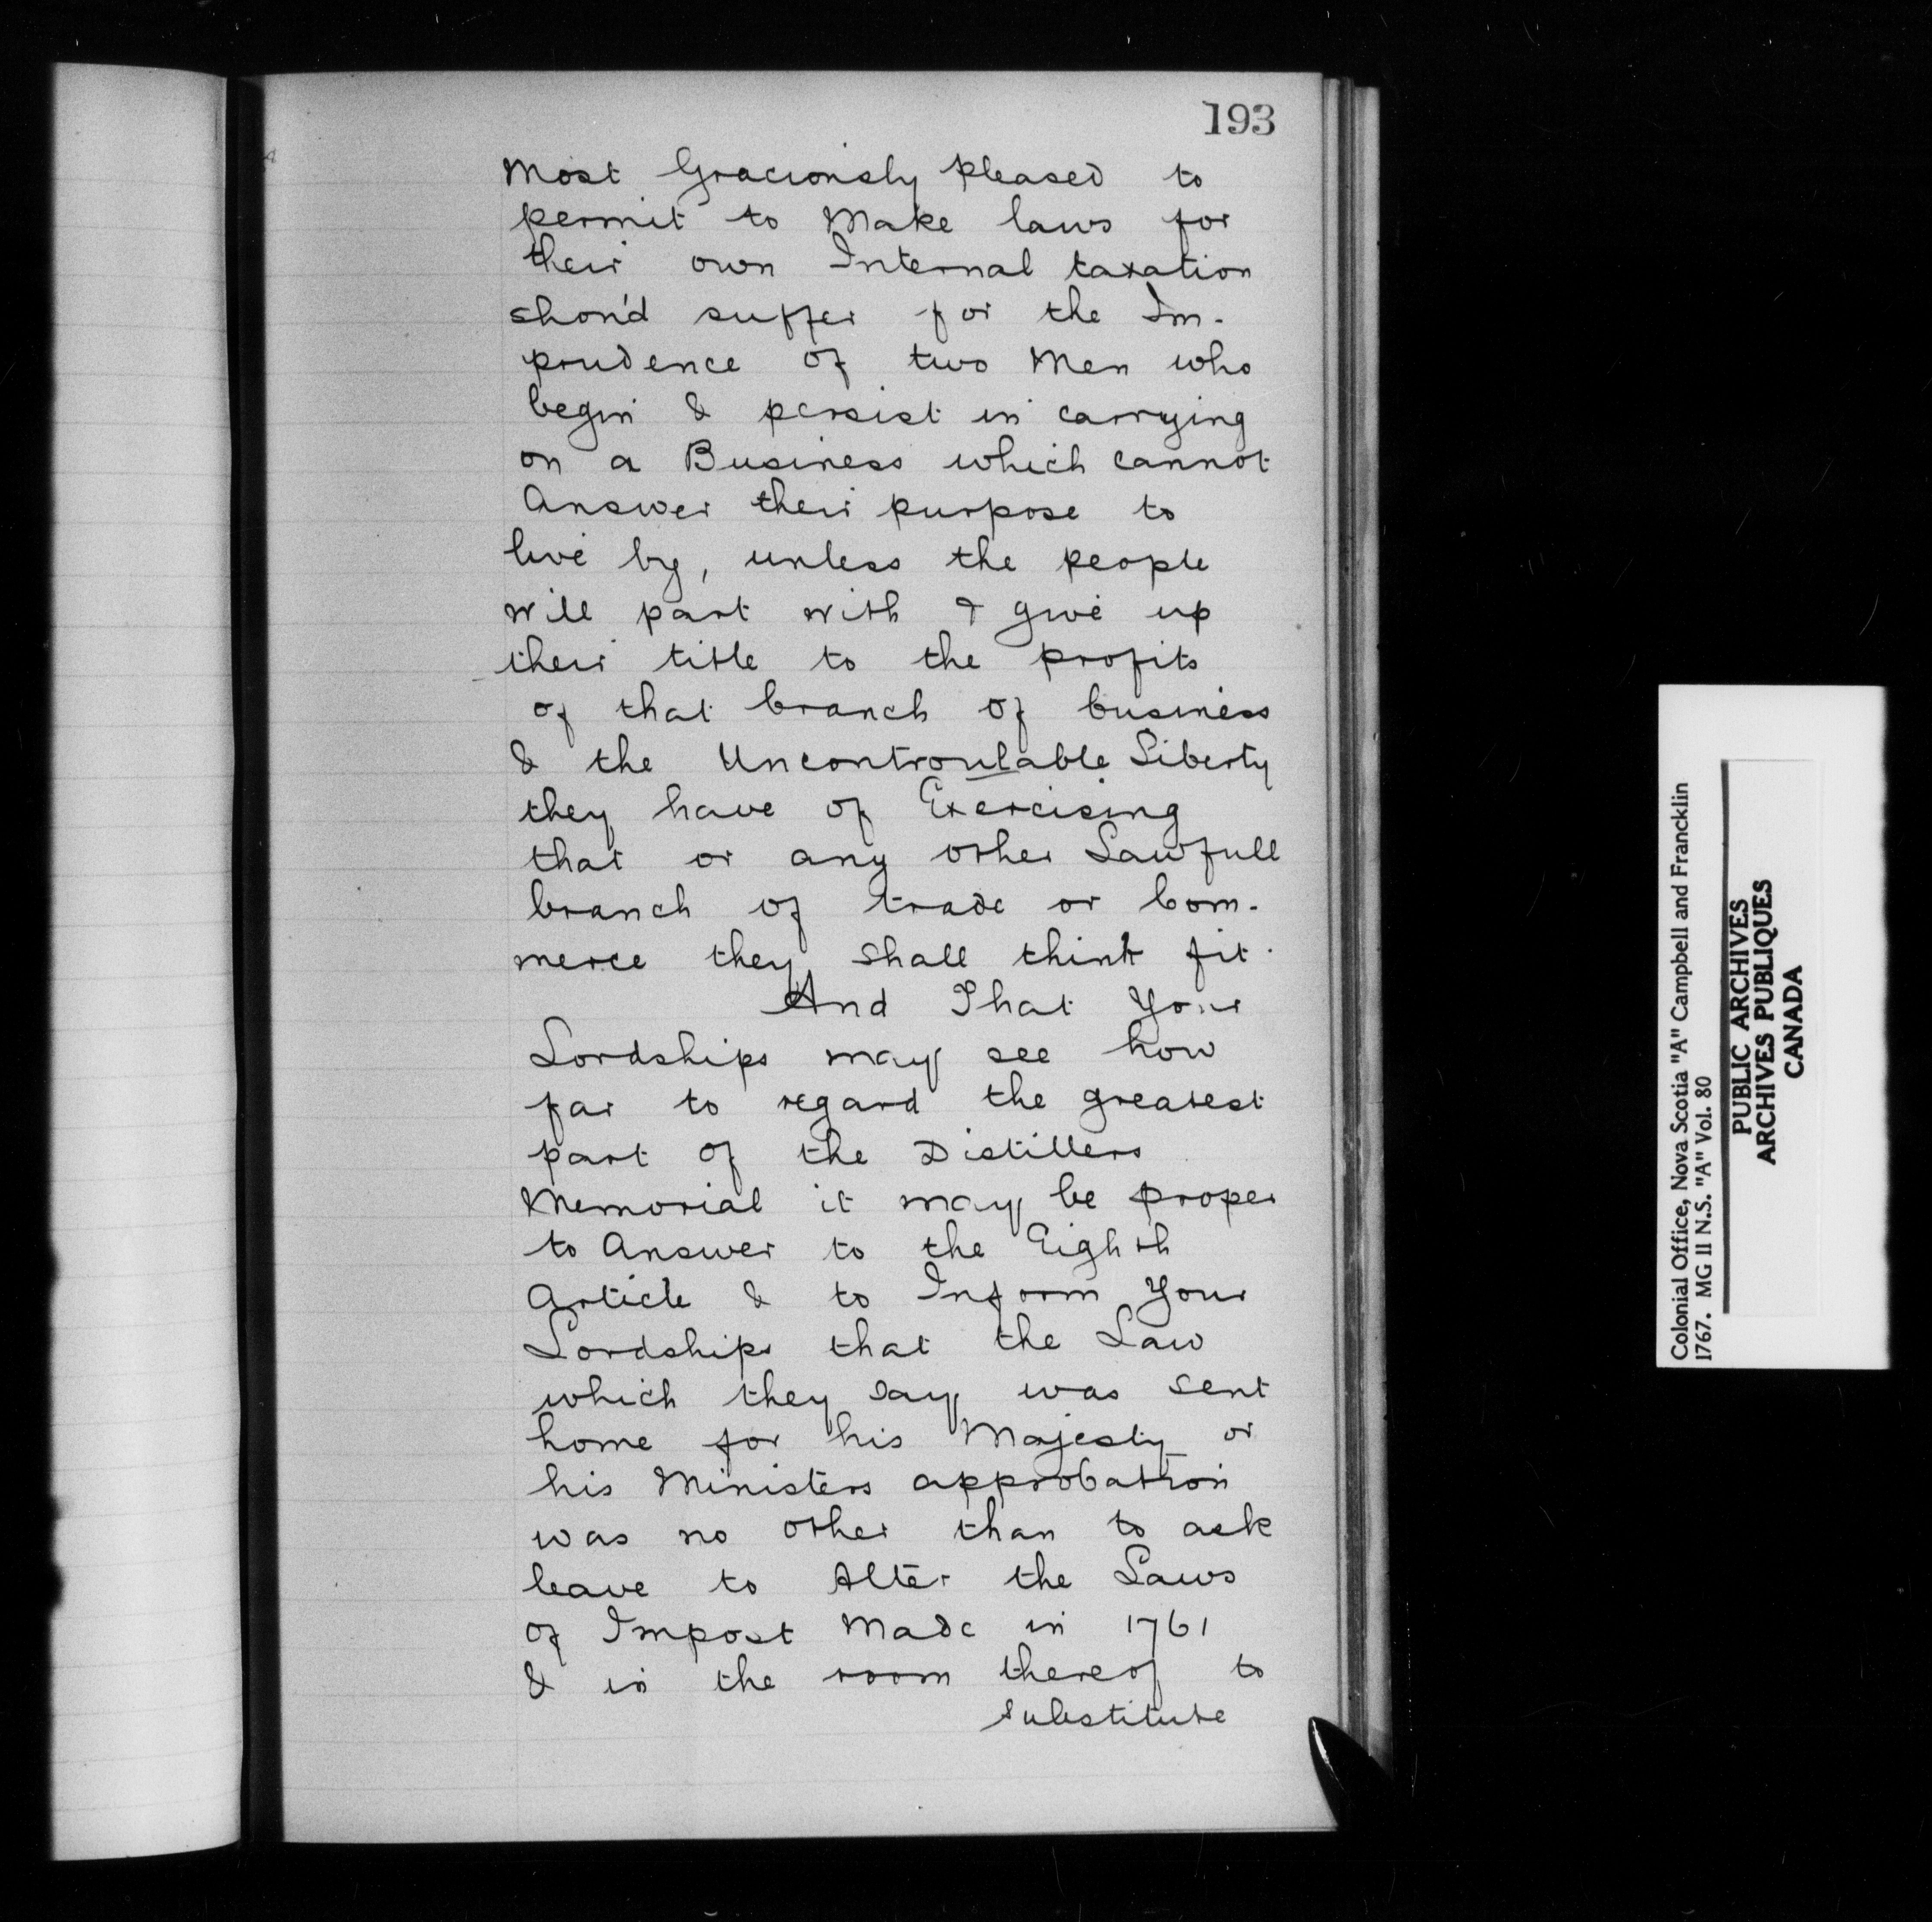 193
Most Graciously pleased to
permit to Make laws for
their own Internal taxation
shou'd suffer for the Im-
prudence of two Men who
begin & persist in carrying
on a Business which cannot
Answer their purpose to
live by, unless the people
will part with & give up
their title to the profits
of that branch of business
& the Uncontroulable Liberty
they have of Exercising
that or any other Lawfull
branch of trade or Com-
merce they shall think fit.
And That Your
Lordships may see how
far to regard the greatest
part of the Distillers
Memorial it may be proper
to Answer to the Eighth
Article & to Inform Your
Lordships that the Law
which they say was sent
home for his Majesty or
his Ministers approbation
was no other than to ask
leave to Alter the Laws
of Impost Made in 1761
& in the room thereof to
substitute
Colonial Office, Nova Scotia "A" Campbell and Francklin
1767. MG 11 N.S. "A" Vol. 80
PUBLIC ARCHIVES
ARCHIVES PUBLIQUES
CANADA